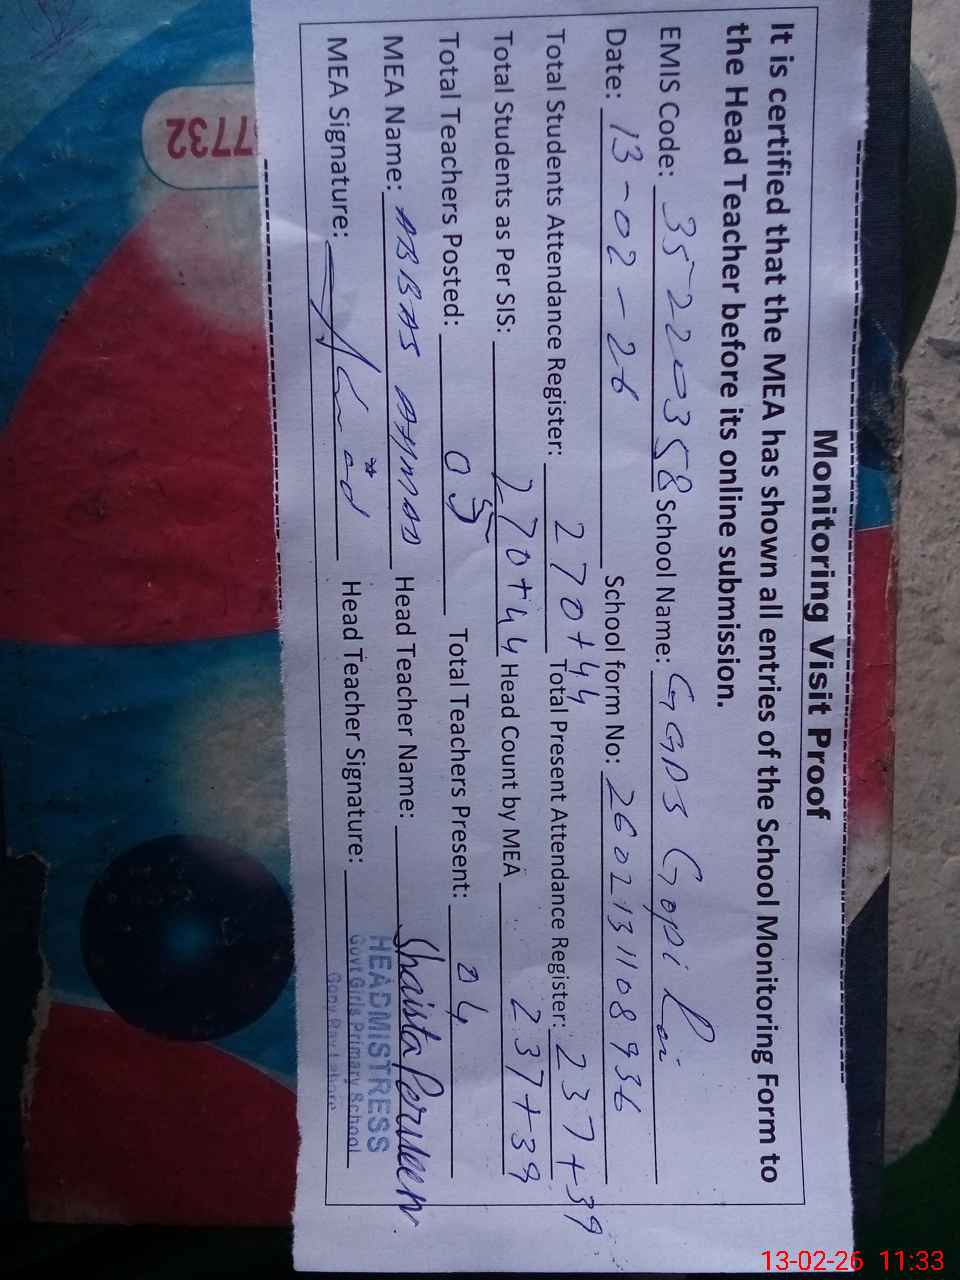 Monitoring Visit Proof
It is certified that the MEA has shown all entries of the School Monitoring Form to
the Head Teacher before its online submission.
EMIS Code: 35220358 School Name: GGPS Gopi Rai
Date: 13-02-26 School form No: 2602131108936
Total Students Attendance Register: 270+44 Total Present Attendance Register: 237+39
Total Students as Per SIS: 270+44 Head Count by MEA 237+39
Total Teachers Posted: 05 Total Teachers Present: 04
MEA Name: ABBAS Head Teacher Name: Shaista Perveen
MEA Signature: Head Teacher Signature:
HEADMISTRESS
Govt Girls Primary School
7732
13-02-26 11:33